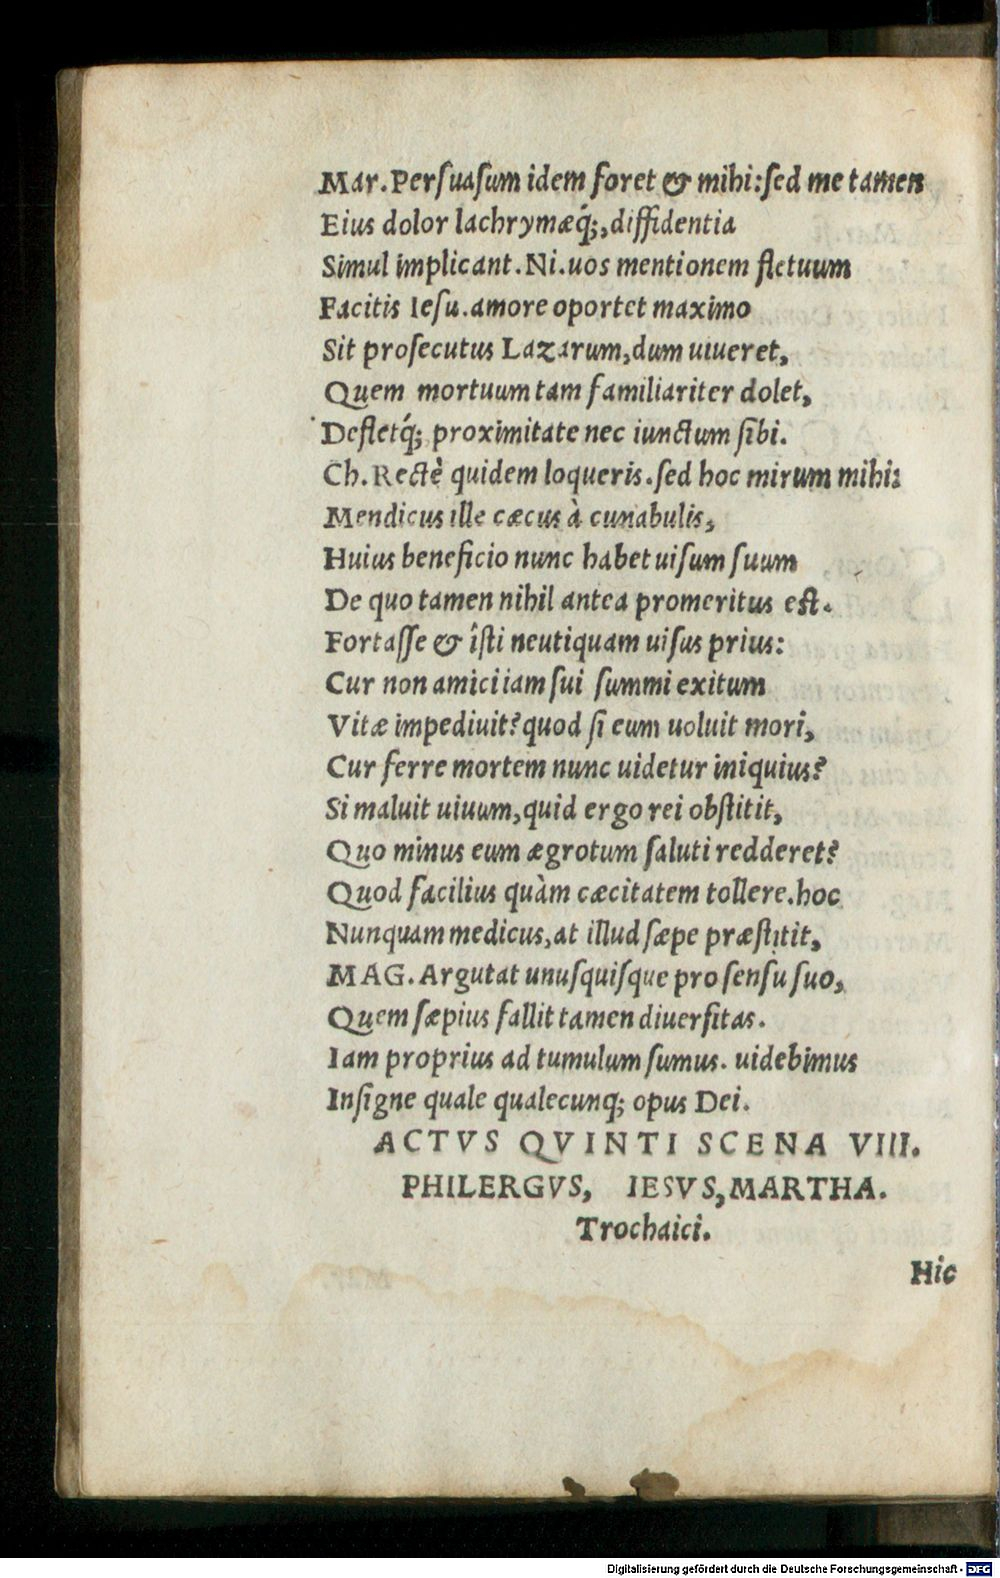 Mar. Persuasum idem foret & mihi: sed me tamen
Eius dolor lachrymæq́;, diffidentia
Simul implicant. Ni. uos mentionem fletuum
Facitis Iesu. amore oportet maximo
Sit prosecutus Lazarum, dum uiueret,
Quem mortuum tam familiariter dolet,
Defletq́; proximitate nec iunctum sibi.
Ch. Rectè quidem loqueris. sed hoc mirum mihi:
Mendicus ille cæcus à cunabulis,
Huius beneficio nunc habet uisum suum
De quo tamen nihil antea promeritus est.
Fortasse & îsti neutiquam uisus prius:
Cur non amici iam sui summi exitum
Vitæ impediuit? quod si eum uoluit mori,
Cur ferre mortem nunc uidetur iniquius?
Si maluit uiuum, quid ergo rei obstitit,
Quo minus eum ægrotum saluti redderet?
Quod facilius quàm cæcitatem tollere. hoc
Nunquam medicus, at illud sæpe præstitit,
MAG. Argutat unusquisque pro sensu suo,
Quem sæpius fallit tamen diuersitas.
Iam proprius ad tumulum sumus. uidebimus
Insigne quale qualecunq; opus Dei.
ACTVS QVINTI SCENA VIII.
PHILERGVS, IESVS, MARTHA.
Trochaici.
Hic
Digitalisierung gefördert durch die Deutsche Forschungsgemeinschaft - DFG